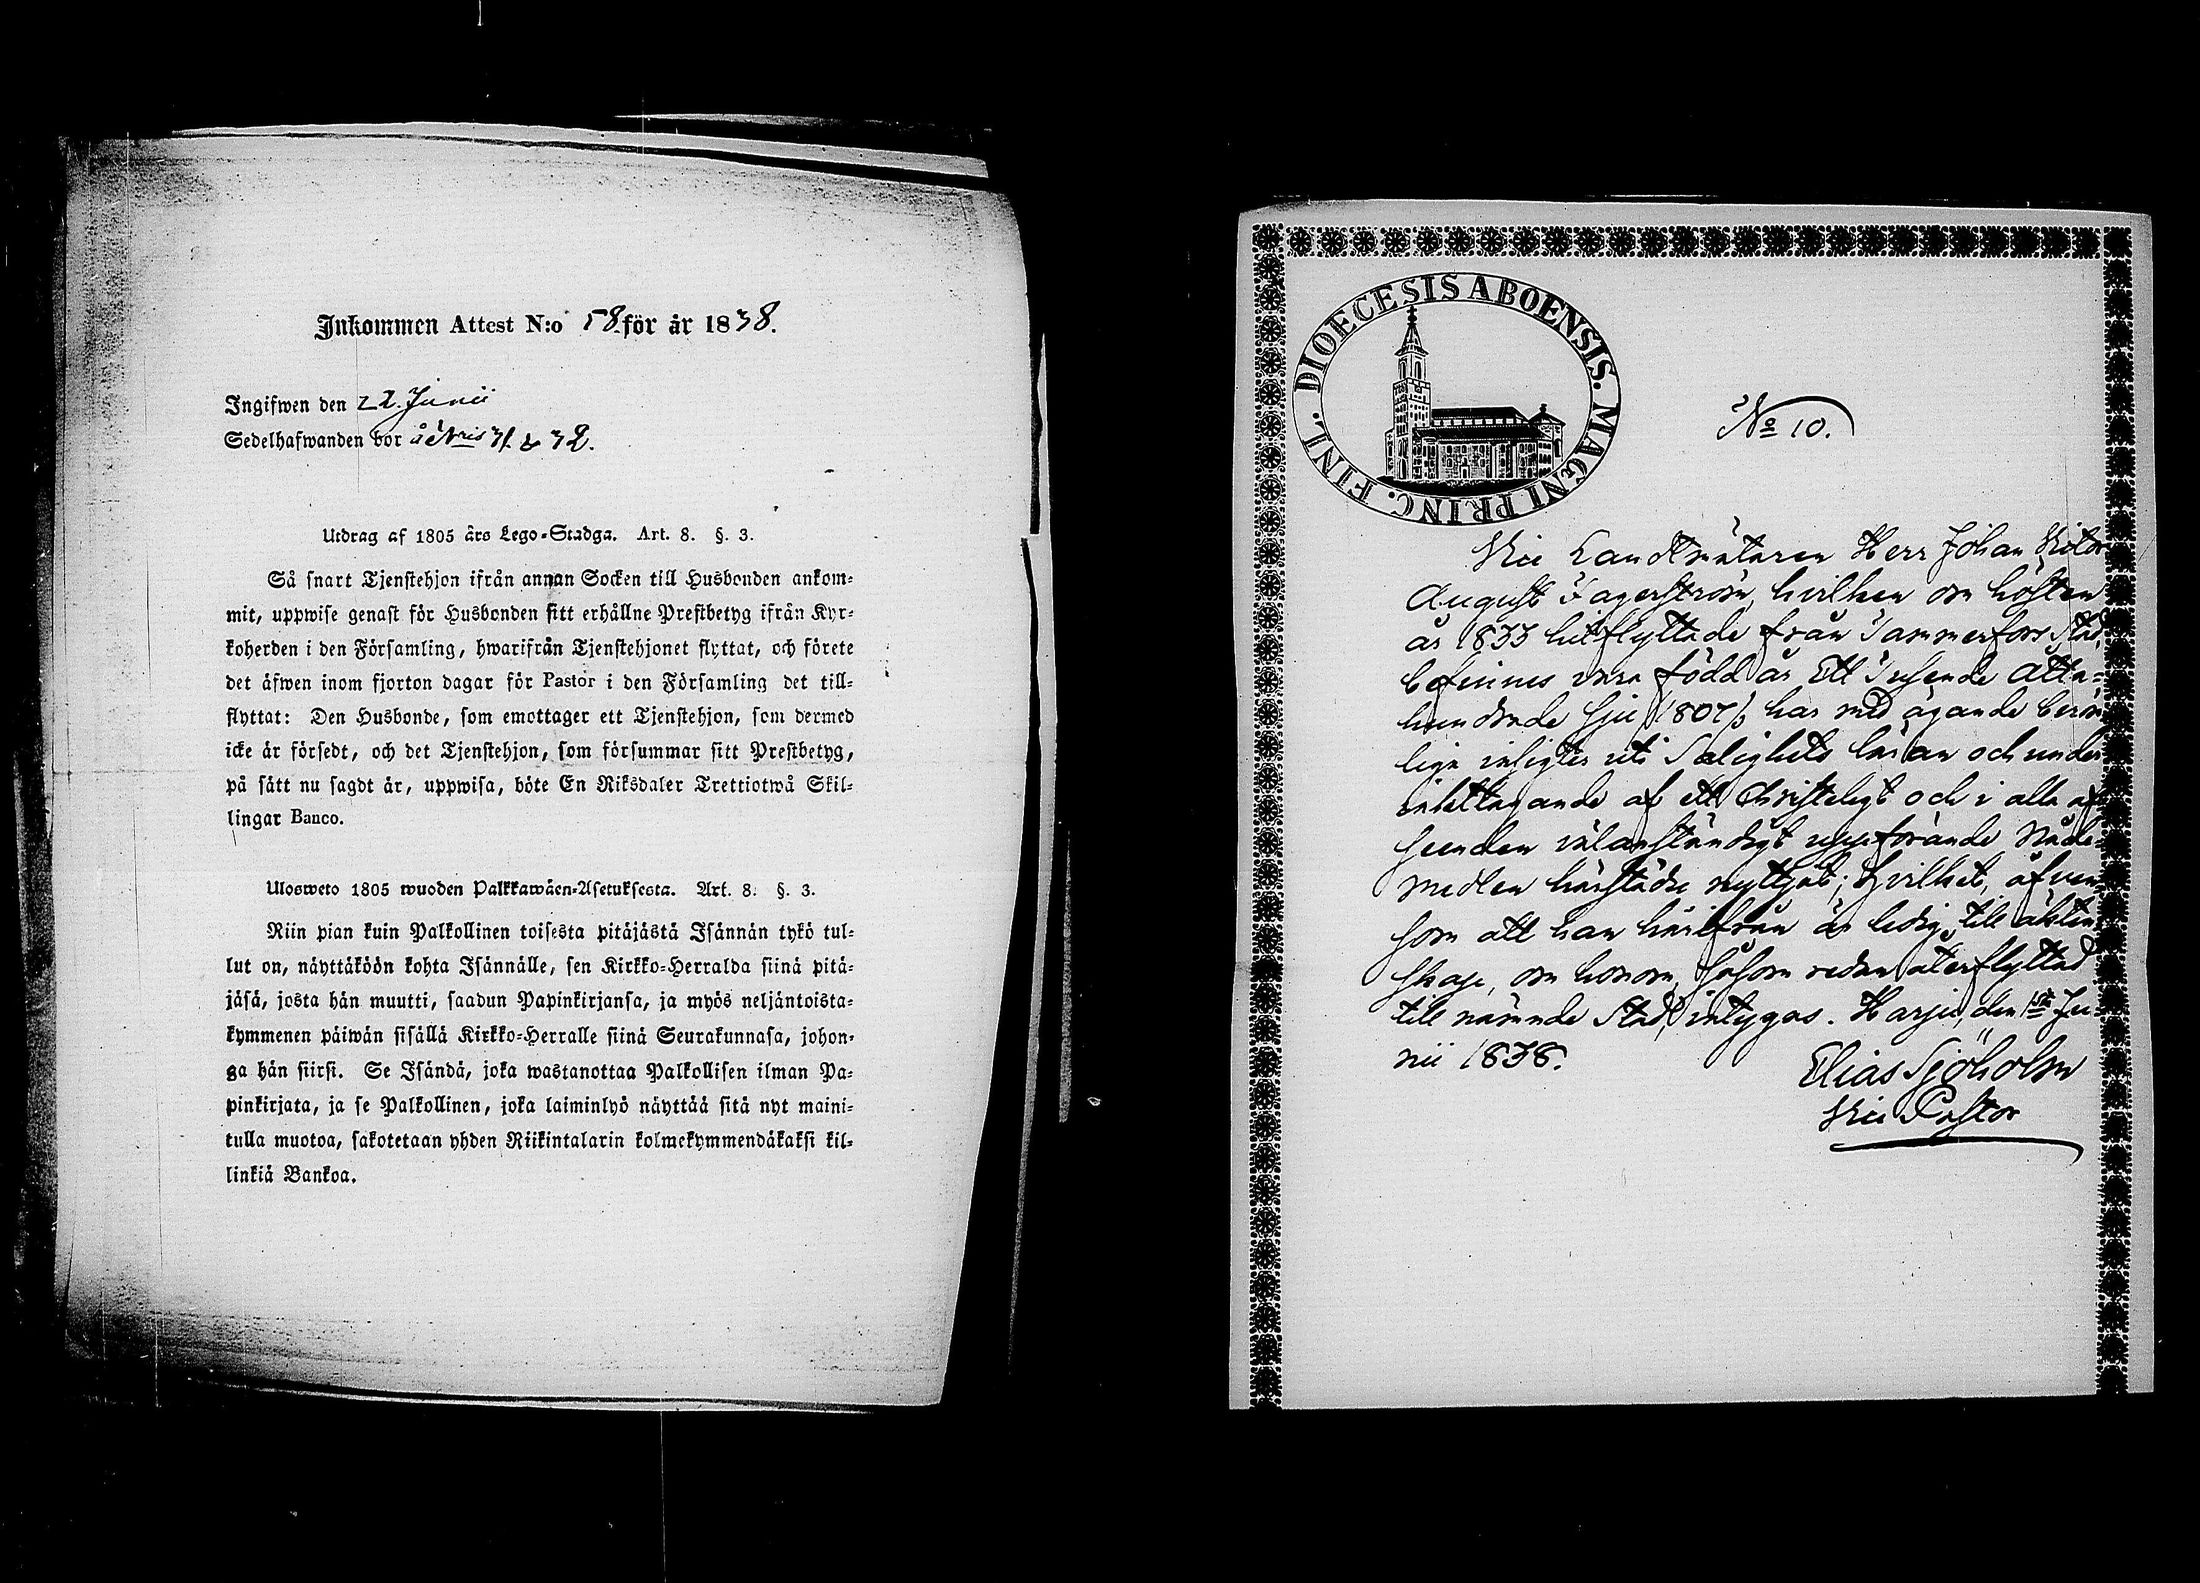 Inkommen Attest N:o 58 för år 1838.
Ingifwen den 22. Junii
Sedelhafwanden bor å Nris 31. & 32.
Utdrag af 1805 års Lego-Stadga. Art. 8. §. 3.
Så snart Tjenstehjon ifrån annan Socken till Husbonden ankom-
mit, uppwise genast för Husbonden sitt erhållne Prestbetyg ifrån Kyr-
koherden i den Församling, hwarifrån Tjenstehjonet flyttat, och förete
det äfwen inom fjorton dagar för Pastor i den Församling det till-
flyttat: Den Husbonde, som emottager ett Tjenstehjon, som dermed
icke är försedt, och det Tjenstehjon, som försummar sitt Prestbetyg,
på sätt nu sagdt är, uppwisa, böte En Riksdaler Trettiotwå Skil-
lingar Banco.
Ulosweto 1805 wuoden Palkkawäen-Asetuksesta. Art. 8. §. 3.
Niin pian kuin Palkollinen toisesta pitäjästä Isännän tykö tul-
lut on, näyttäköön kohta Isännälle, sen Kirkko-Herralda siinä pitä-
jäsä, josta hän muutti, saadun Papinkirjansa, ja myös neljäntoista-
kymmenen päiwän sisällä Kirkko-Herralle siinä Seurakunnasa, johon-
ga hän siirsi. Se Isändä, joka wastanottaa Palkollisen ilman Pa-
pinkirjata, ja se Palkollinen, joka laiminlyö näyttää sitä nyt maini-
tulla muotoa, sakotetaan yhden Riikintalarin kolmekymmendäkaksi kil-
linkiä Bankoa.
DIOECESIS ABOENSIS. MAGNI PRINC. FINL.
No 10.
Vice Landtmätaren Herr Johan Victor
August Fagerström, hvilken om hösten
år 1833 hitflyttade från Tammerfors Stad,
befinnes vara född år Ett Tusende Åtta-
hundrade sju /1807/, har med ägande beröm-
liga insigter uti Salighets läran och under
iakttagande af ett Christeligt och i alla af-
seenden välanständigt uppförande Nåde-
medlen härstädes nyttjat; hvilket, äfven
som att han härifrån är ledig till äkten-
skap, om honom, såsom redan återflyttad
till nämnde Stad, intygas. Harju, den 1st Ju-
nii 1838.
Elias Sjöholm
Vice Pastor